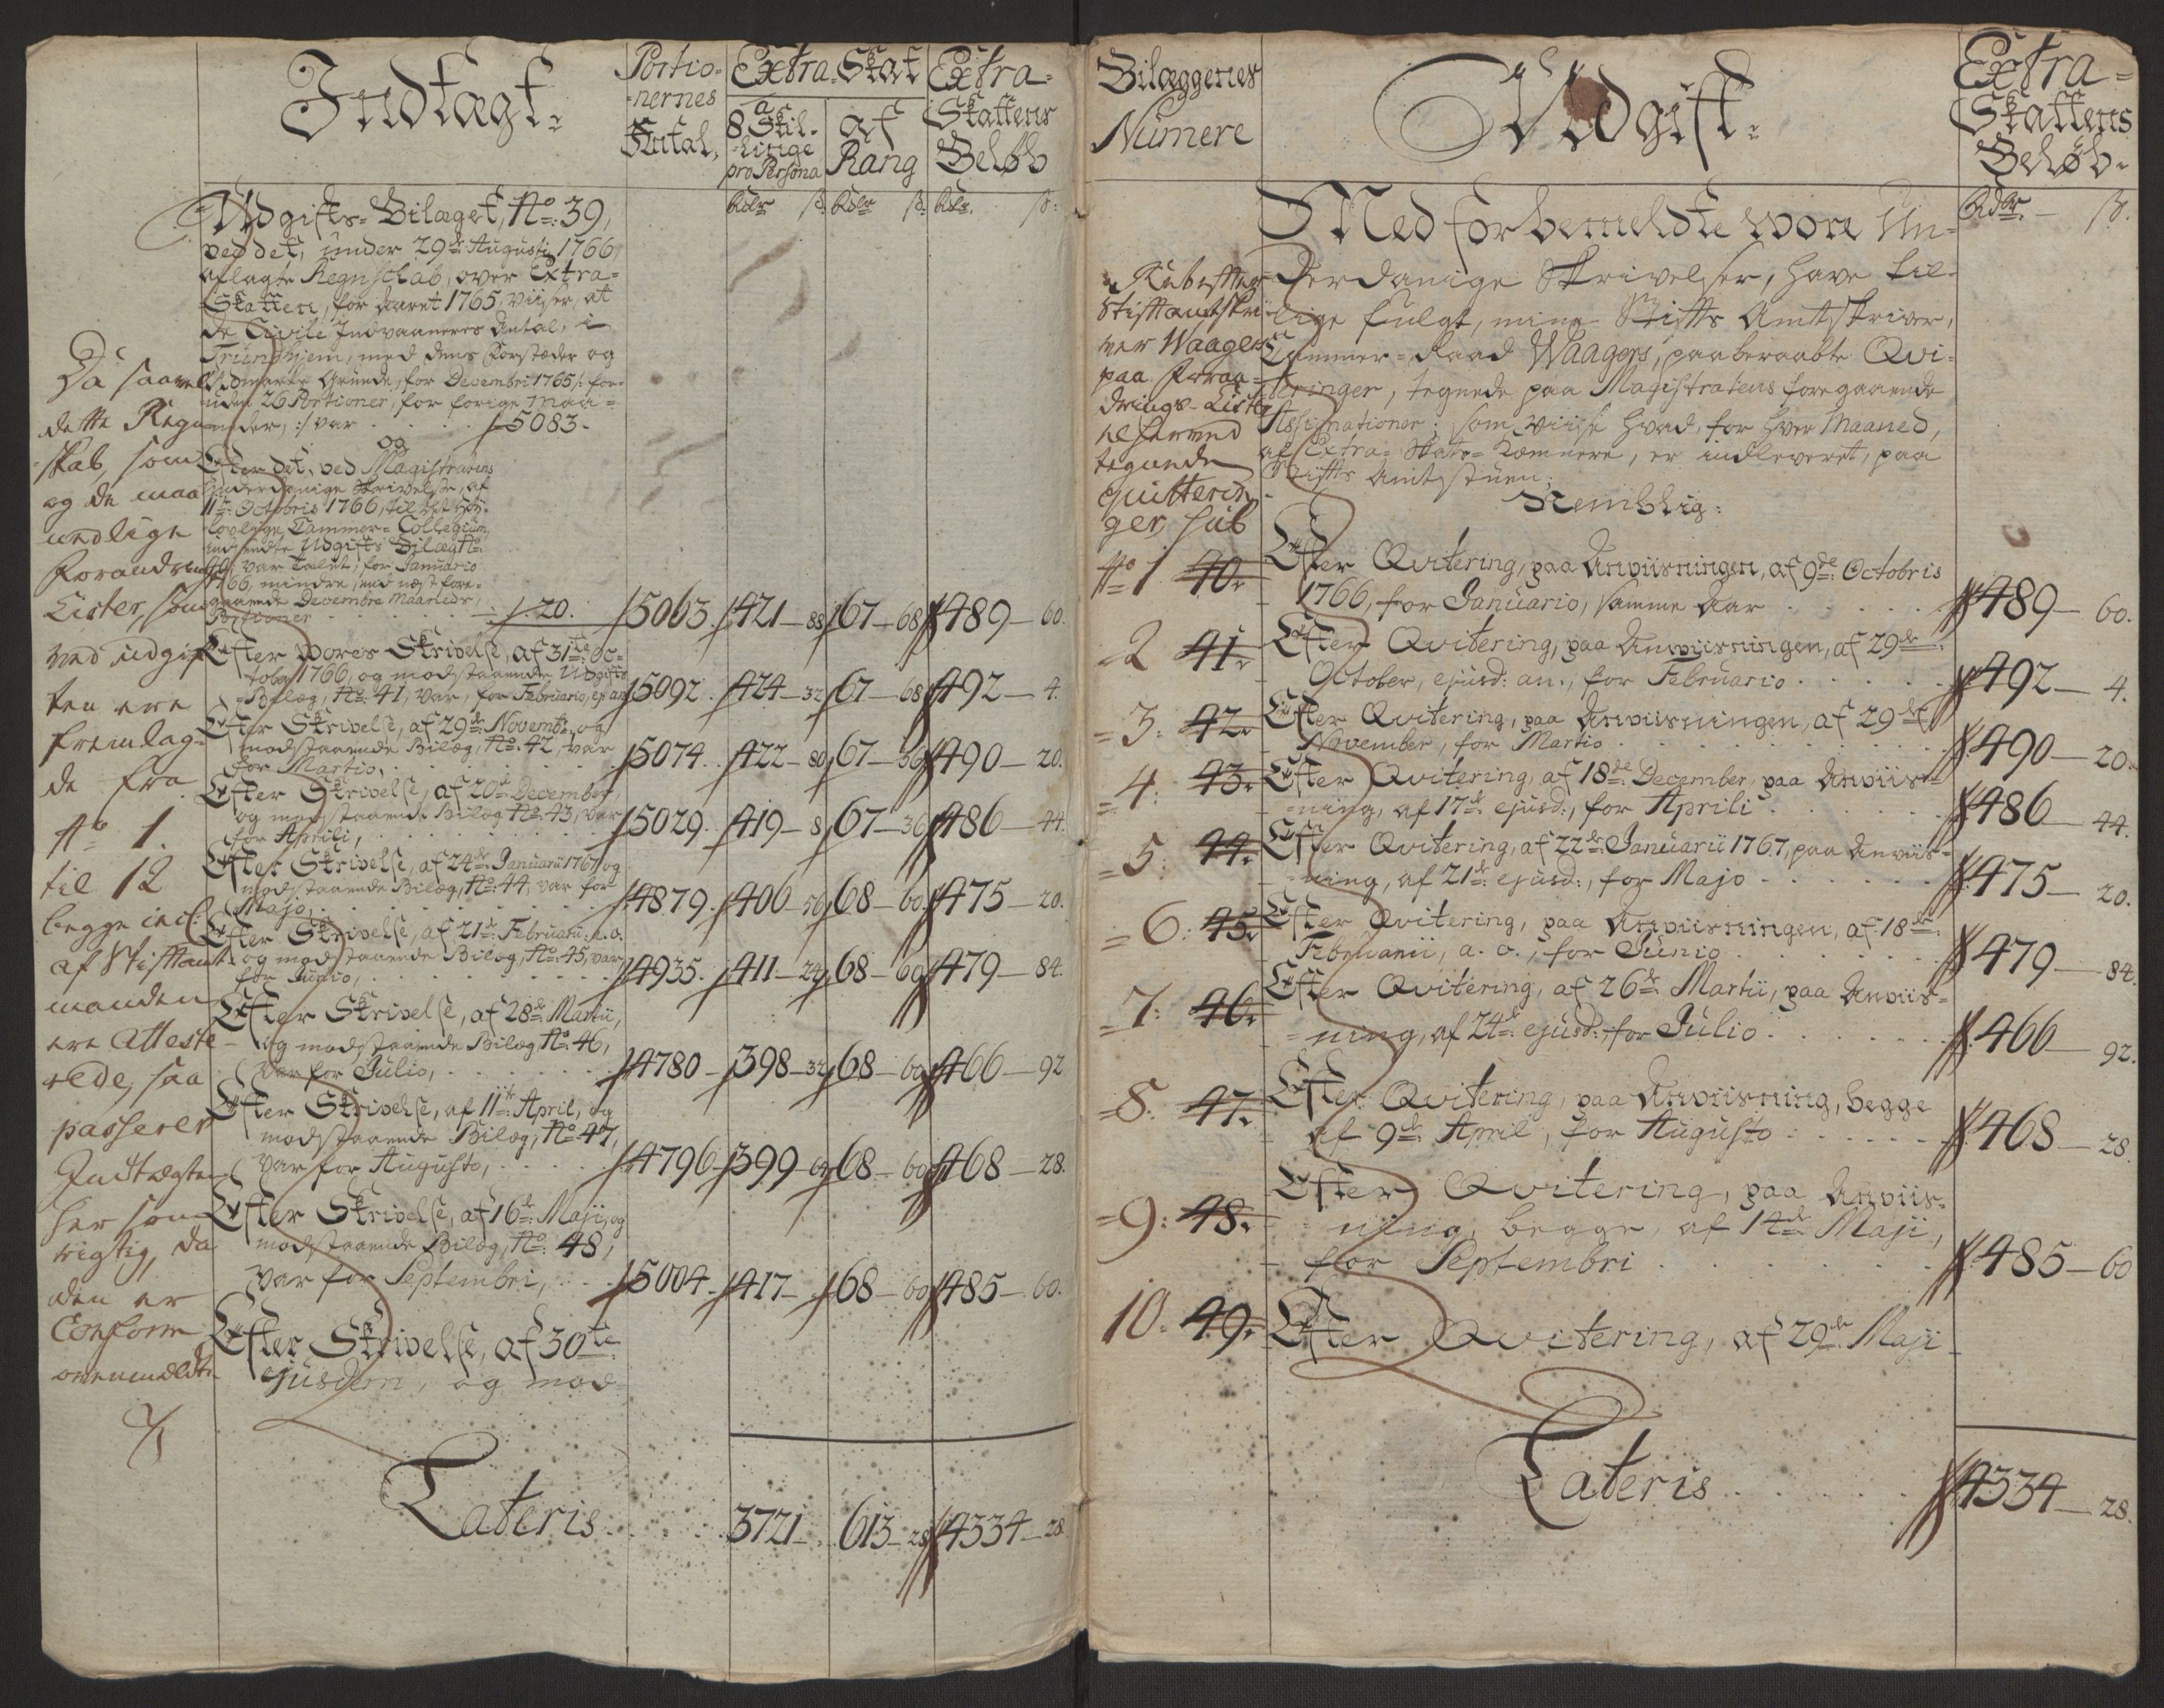 Indtægt:
Portio-
nernes
Antal,
Extra-Skat
a
8 Skil-
linge
pro Persona
af
Rang
Extra-
Skattens
Beløb
Rdlr ß. Rdlr ß. Rdlr. ß:
Udgifts-Bilaget, No: 39,
ved det, under 29de Augusti 1766
aflagte Regnskab, over Extra-
Skatten, for Aaret 1765, viiser, at
de Civile Indvaaneres Antal, i
Trundhjem, med dens Forstæder og
Udmarks Grunde, for Decembri 1765 /: for-
uden 26 Portioner, for forige Maa-
neder, :/ var . . . . 5083.
og
Efter det, ved Magistratens
underdanige Skrivelse, af
11te Octobris 1766, til det Høy-
lovlige Cammer-Collegium
indsendte Udgifts Bilag No:
40, var Tallet, for Januario
1766, mindre, end næst fore-
gaaende Decembr. Maaneds,
Portioner . . . . 20. 5063. 421 – 88 67 – 68 489 – 60.
Efter Vores Skrivelse, af 31te Oc-
tober 1766, og modstaaende Udgifts
Bilag, No: 41, var, for Februario, ej: an: 5092. 424 – 32 67 – 68 492 – 4.
Efter Skrivelse, af 29de Novembr. og
modstaaende Bilag, No: 42, var
for Martio, . . . . 5074. 422 – 80 67 – 36 490 – 20.
Efter Skrivelse, af 20de December,
og modstaaende Bilag No: 43, var
for Aprili, . . . . 5029. 419 – 8 67 – 36 486 – 44.
Efter Skrivelse, af 24de Januarii 1767 og
modstaaende Bilag, No: 44, var for
Majo, . . . . 4879. 406 – 56 68 – 60 475 – 20.
Efter Skrivelse, af 21de Februarii: a. o.
og modstaaende Bilag, No: 45, var
for Junio, . . . . 4935. 411 – 24 68 – 60 479 – 84.
Efter Skrivelse, af 28de Martii,
og modstaaende Bilag, No: 46,
var for Julio, . . . . 4780 – 398 – 32 68 – 60 466 – 92
Efter Skrivelse, af 11te April, og
modstaaende Bilag, No: 47,
var for Augusto, . . . . 4796 – 399 – 64 68 – 60 468 – 28.
Efter Skrivelse, af 16de Maji, og
modstaaende Bilag, No: 48,
var for Septembri, . . . 5004. 417 – . 68 – 60 485 – 60.
Efter Skrivelse, af 30te
ejusdem, og mod-
Lateris . . . . 3721 – . 613 – 28 4334 – 28
Da saavel
dette Regn-
skab, som
og de maa-
nedlige
Forandrings
Lister, som
ved udgif-
ten ere
fremlag-
de fra
No 1.
til 12
begge incl:
af Stiftamt-
manden
ere Atteste-
rede, saa
passerer
Indtægten
her som
rigtig, da
den er
Conform
ovenmeldte
Bilæggenes
Numere
Udgift:
Extra-
Skattens
Beløb.
Rdlr. – ß.
Med forbemeldte vore Un-
derdanige Skrivelser, have til-
lige fulgt, mine Stifts Amtskriver,
Cammer-Raad Waagers, paaberaabte Qvi-
teringer, tegnede paa Magistratens foregaaende
Assignationer; som viise hvad, for hver Maaned,
af Extra-Skatt-Kæmnere, er indleveret, paa
Stifts Amtstuen;
Nemblig:
Stiftamtskri-
ver Waagers
paa Foran-
drings-Liste
tegnede
quitterin-
ger sub
No 1 40. Efter Qvitering, paa Anviisningen, af 9de Octobris
1766, for Januario, samme Aar . . . . 489 – 60.
2 41. Efter Qvitering, paa Anviisningen, af 29de
October, ejusd: an., for Februario . . . . 492 – 4.
3: 42. Efter Qvitering, paa Anviisningen, af 29de
November, for Martio . . . . 490 – 20.
4: 43. Efter Qvitering, af 18de December, paa Anviis-
ning, af 17de ejusd:, for Aprili . . . . 486 – 44.
5: 44. Efter Qvitering, af 22de Januarii 1767, paa Anviis-
ning, af 21de ejusd:, for Majo . . . . 475 – 20.
6: 45. Efter Qvitering, paa Anviisningen, af 18de
Februarii, a. o., for Junio . . . . 479 – 84.
7: 46. Efter Qvitering, af 26de Martii, paa Anviis-
ning, af 24de ejusd:, for Julio . . . . 466 – 92.
8: 47. Efter Qvitering, paa Anviisning, begge
af 9de April, for Augusto . . . . 468 – 28.
9: 48. Efter Qvitering, paa Anviis-
ning, begge, af 14de Maji,
for Septembri . . . . 485 – 60
10. 49. Efter Qvitering, af 29de Maji
Lateris . . . . 4334 – 28.